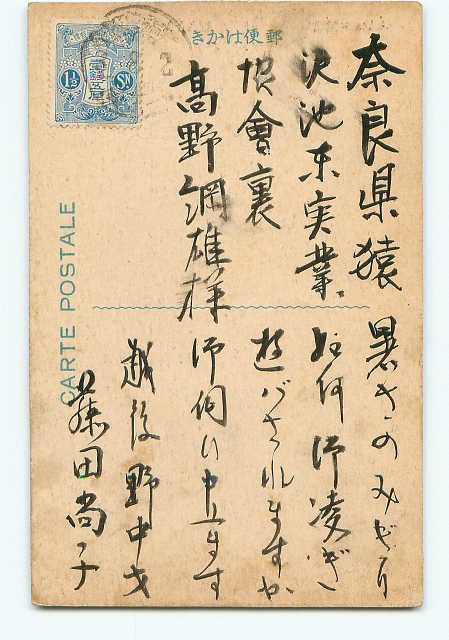 郵便はかき
奈良県猿
沢池東実業
會裏
高野綱雄様
暑さのみぎり
如何御凌ぎ
遊バされますか
御伺い申上ます
越後野中才
藤田尚子
CARTE POSTALE
1½ SN